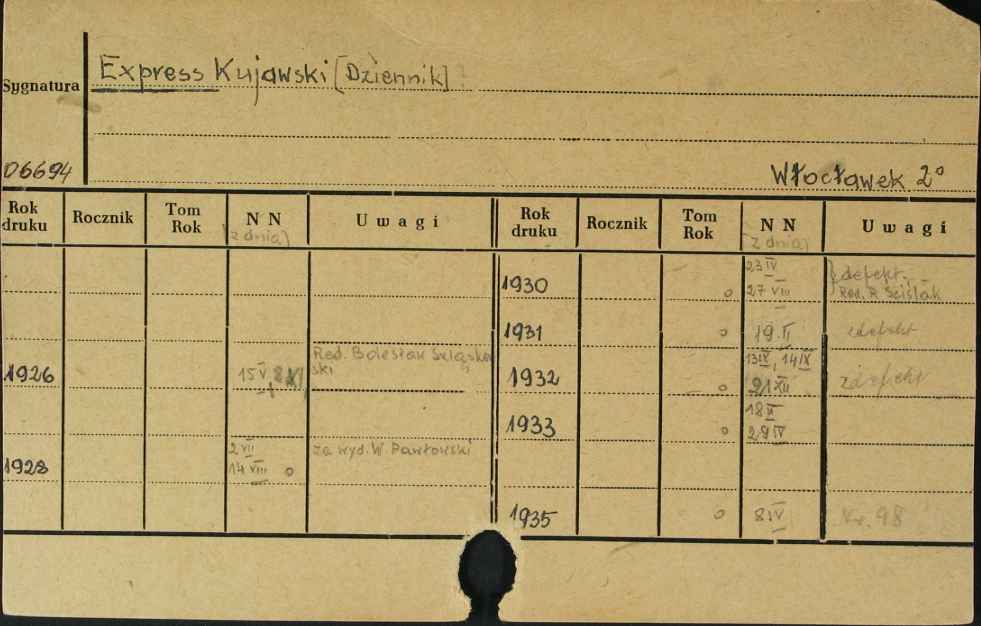 Express Kujawski [Dziennik]
Sygnatura
D6694
Włocławek 2°
Rok druku Rocznik Tom Rok N N (z dnia) U w a g i
1926 15 V, 8 XI Red. Bolesław
1928 2 VII 14 VIII o za wyd. W. Pawłowski
Rok druku Rocznik Tom Rok N N (z dnia) U w a g i
1930 o 23 IV 27 VIII defekt. Red. R. Sciślak
1931 o 19. II defekt
1932 o 13 IX, 14 IX XII zdefekt
1933 o 18 II 29 IV
1935 o 8 IV Nr. 98